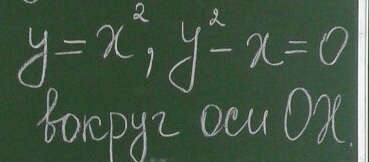 y = x², y² - x = 0
вокруг оси OX.